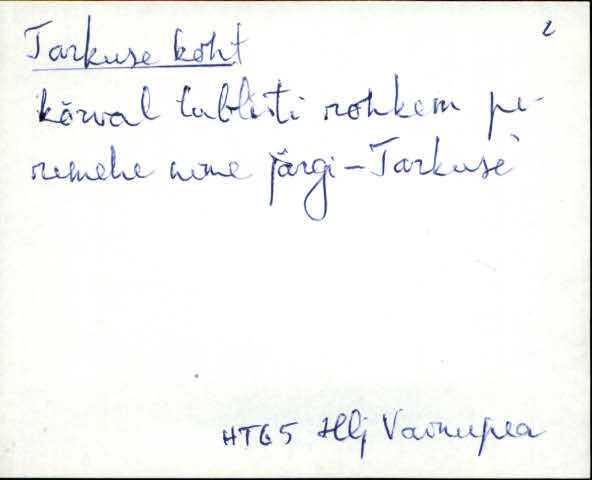 2
Tarkuse koht
kõrval tabliti rohkem pe-
remehe nime järgi – Tarkuse`
HTG5 Hlj Vainupea